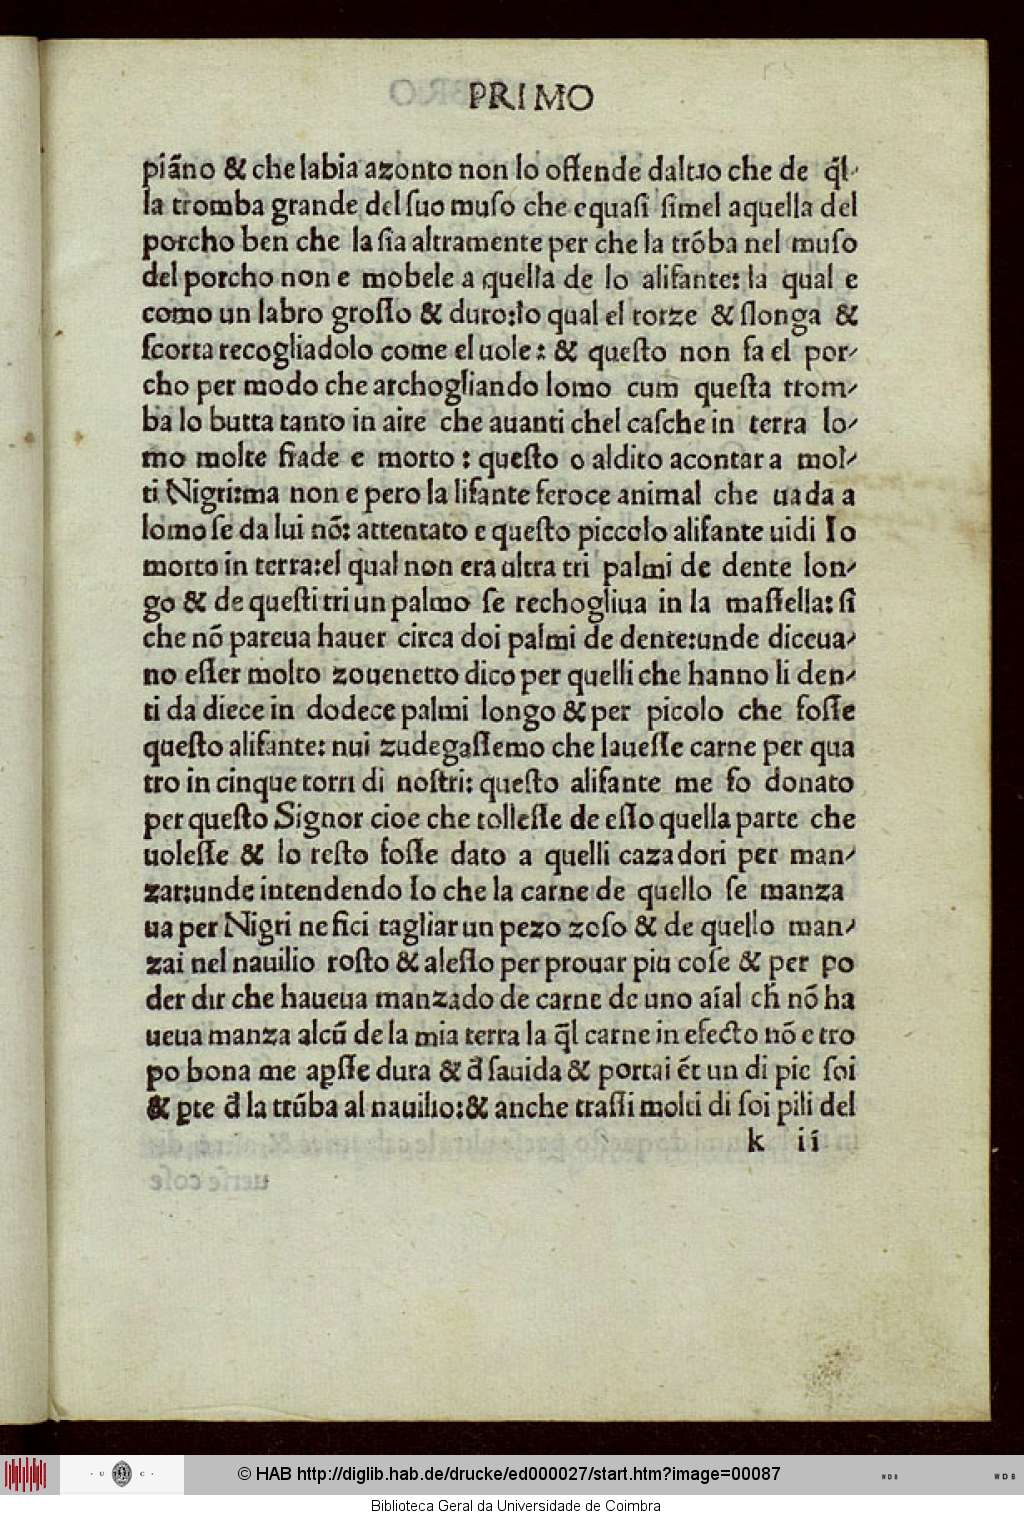 PRIMO
piãno & che labia azonto non lo offende daltro che de q̃l-
la tromba grande del suo muso che equasi simel aquella del
porcho ben che la sia altramente per che la trõba nel muso
del porcho non e mobele a quella de lo alifante: la qual e
como un labro grosso & duro: lo qual el torze & slonga &
scorta recogliadolo come el uole: & questo non fa el por-
cho per modo che archogliando lomo cum questa trom-
ba lo butta tanto in aire che auanti chel casche in terra lo-
mo molte fiade e morto: questo o aldito acontar a mol-
ti Nigri: ma non e pero la lifante feroce animal che uada a
lomo se da lui nõ: attentato e questo piccolo alifante uidi Io
morto in terra: el qual non era ultra tri palmi de dente lon-
go & de questi tri un palmo se rechogliua in la massella: si
che nõ pareua hauer circa doi palmi de dente: unde diceua-
no esser molto zouenetto dico per quelli che hanno li den-
ti da diece in dodece palmi longo & per picolo che fosse
questo alifante: nui zudegassemo che lauesse carne per qua
tro in cinque torri di nostri: questo alifante me fo donato
per questo Signor cioe che tollesse de esso quella parte che
uolesse & lo resto fosse dato a quelli cazadori per man-
zar: unde intendendo Io che la carne de quello se manza
ua per Nigri ne fici tagliar un pezo zoso & de quello man-
zai nel nauilio rosto & alesso per prouar piu cose & per po
der dir che haueua manzado de carne de uno aĩal ch̃ nõ ha
ueua manza alcũ de la mia terra la q̃l carne in efecto nõ e tro
po bona me aꝑsse dura & đ sauida & portai ẽt un di pie soi
& ꝑte đ la trũba al nauilio: & anche trassi molti di soi pili del
k ii
© HAB http://diglib.hab.de/drucke/ed000027/start.htm?image=00087
Biblioteca Geral da Universidade de Coimbra